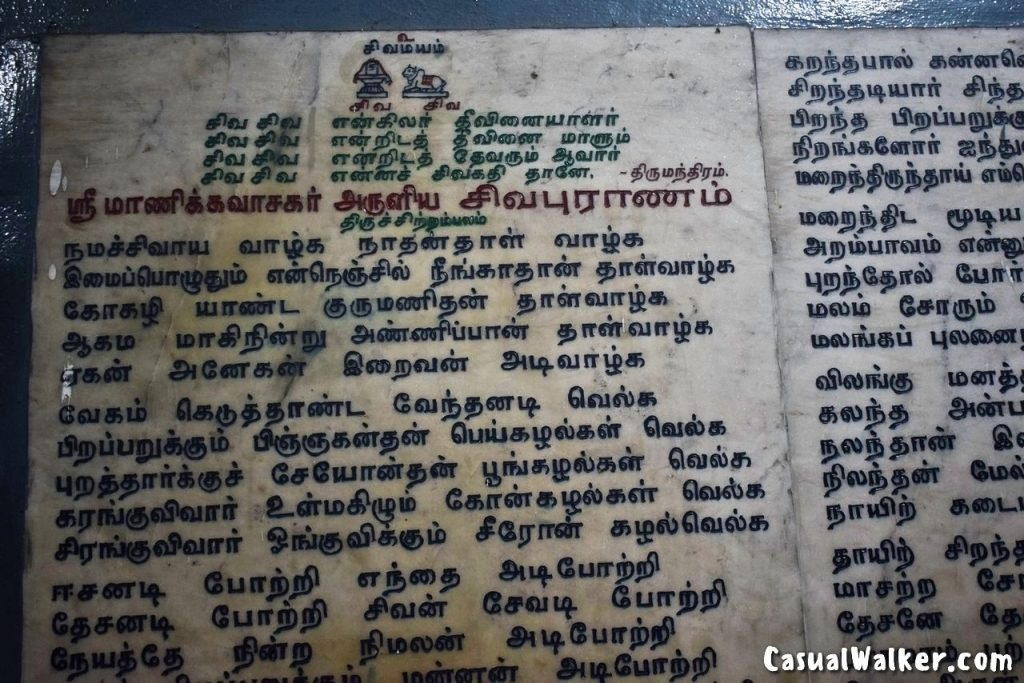 சிவமயம்
சிவ சிவ
சிவ சிவ என்கிலர் தீவினையாளர்
சிவ சிவ என்றிடத் தீவினை மாளும்
சிவ சிவ என்றிடத் தேவரும் ஆவார்
சிவ சிவ என்னச் சிவகதி தானே. -திருமந்திரம்.
ஸ்ரீ மாணிக்கவாசகர் அருளிய சிவபுராணம்
திருச்சிற்றம்பலம்
நமச்சிவாய வாழ்க நாதன்தாள் வாழ்க
இமைப்பொழுதும் என்நெஞ்சில் நீங்காதான் தாள்வாழ்க
கோகழி யாண்ட குருமணிதன் தாள்வாழ்க
ஆகம மாகிநின்று அண்ணிப்பான் தாள்வாழ்க
ஏகன் அனேகன் இறைவன் அடிவாழ்க
வேகம் கெடுத்தாண்ட வேந்தனடி வெல்க
பிறப்பறுக்கும் பிஞ்ஞகன்தன் பெய்கழல்கள் வெல்க
புறத்தார்க்குச் சேயோன்தன் பூங்கழல்கள் வெல்க
கரங்குவிவார் உள்மகிழும் கோன்கழல்கள் வெல்க
சிரங்குவிவார் ஓங்குவிக்கும் சீரோன் கழல்வெல்க
ஈசனடி போற்றி எந்தை அடிபோற்றி
தேசனடி போற்றி சிவன் சேவடி போற்றி
நேயத்தே நின்ற நிமலன் அடிபோற்றி
மன்னன் அடிபோற்றி
கறந்தபால்
சிறந்தடியார்
பிறந்த
நிறங்களோர்
மறைந்திருந்தாய்
மறைந்திட மூடிய
அறம்பாவம்
புறந்தோல்
மலம் சோரும்
மலங்கப்
விலங்கு
கலந்த
நலந்தான்
நிலந்தன்
நாயிற்
தாயிற்
மாசற்ற
தேசனே
CasualWalker.com